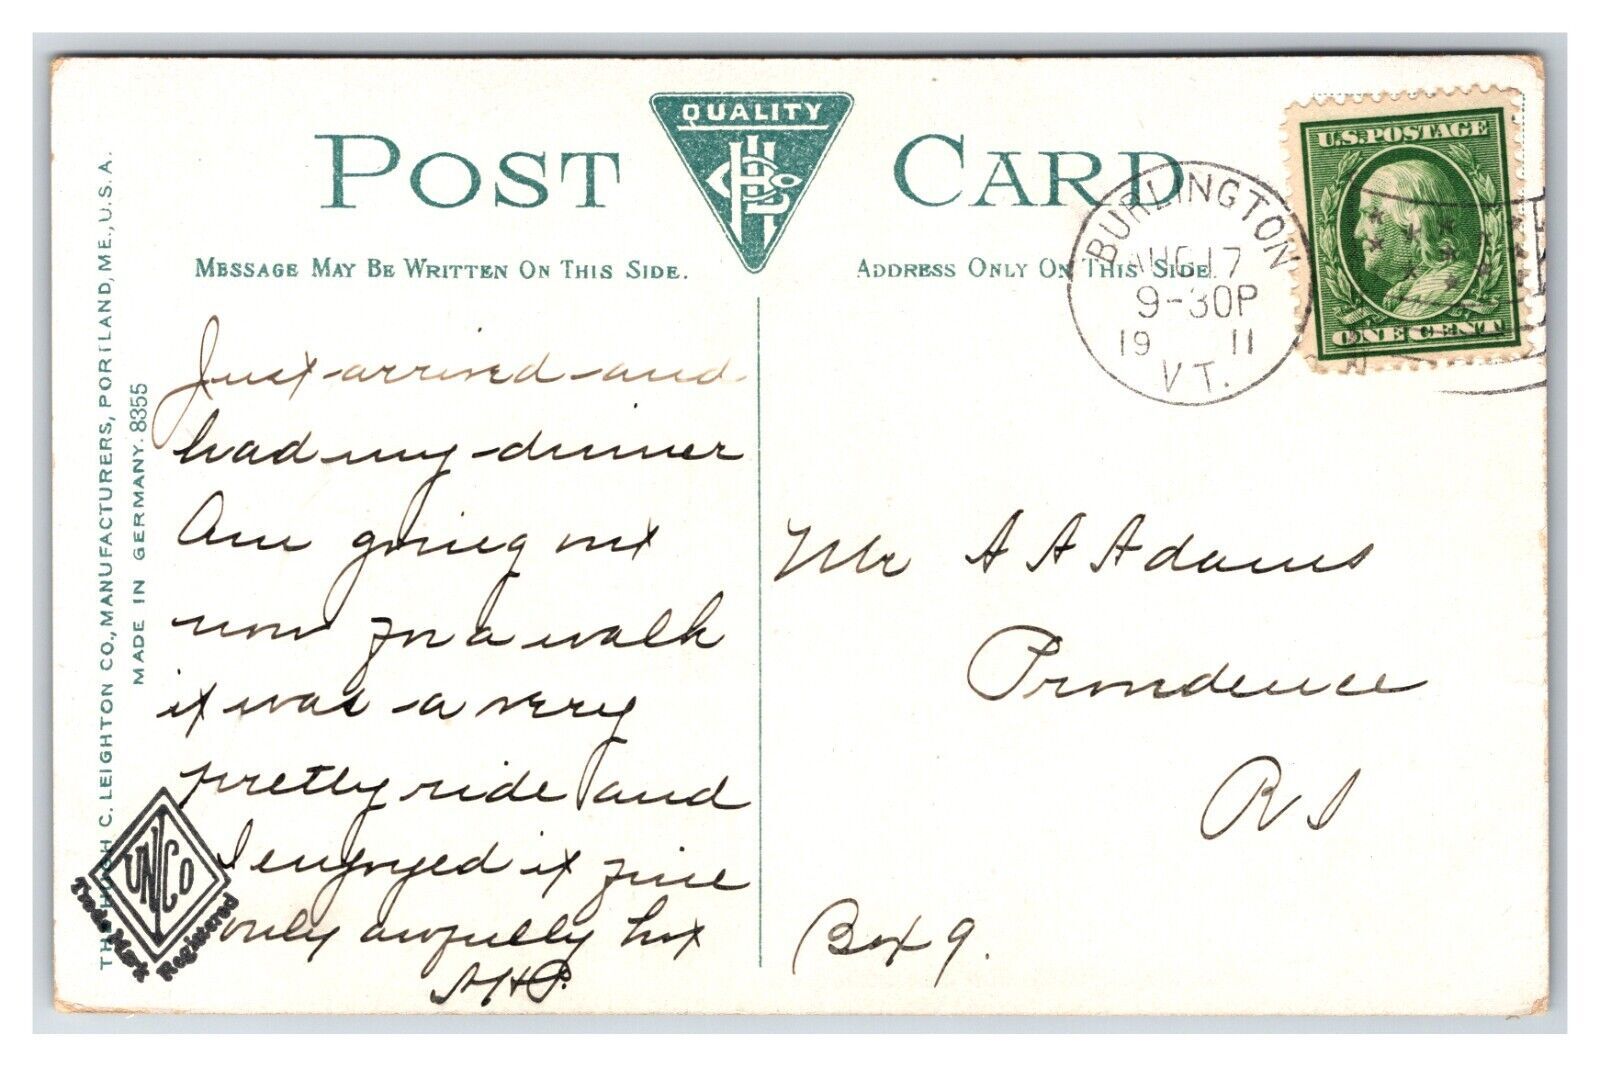 POST CARD
QUALITY
MESSAGE MAY BE WRITTEN ON THIS SIDE.
ADDRESS ONLY ON THIS SIDE.
U.S. POSTAGE
ONE CENT
BURLINGTON
AUG 17
9-30P
19 11
VT.
THE HUGH C. LEIGHTON CO., MANUFACTURERS, PORTLAND, ME., U.S.A.
MADE IN GERMANY. 8355
Just arrived and
had my dinner
Am going out
now for a walk
it was a very
pretty ride and
I enjoyed it fine
only awfully hot
AHP.
Mr A A Adams
Providence
R I
Box 9.
UNCO
Trade Mark
Registered